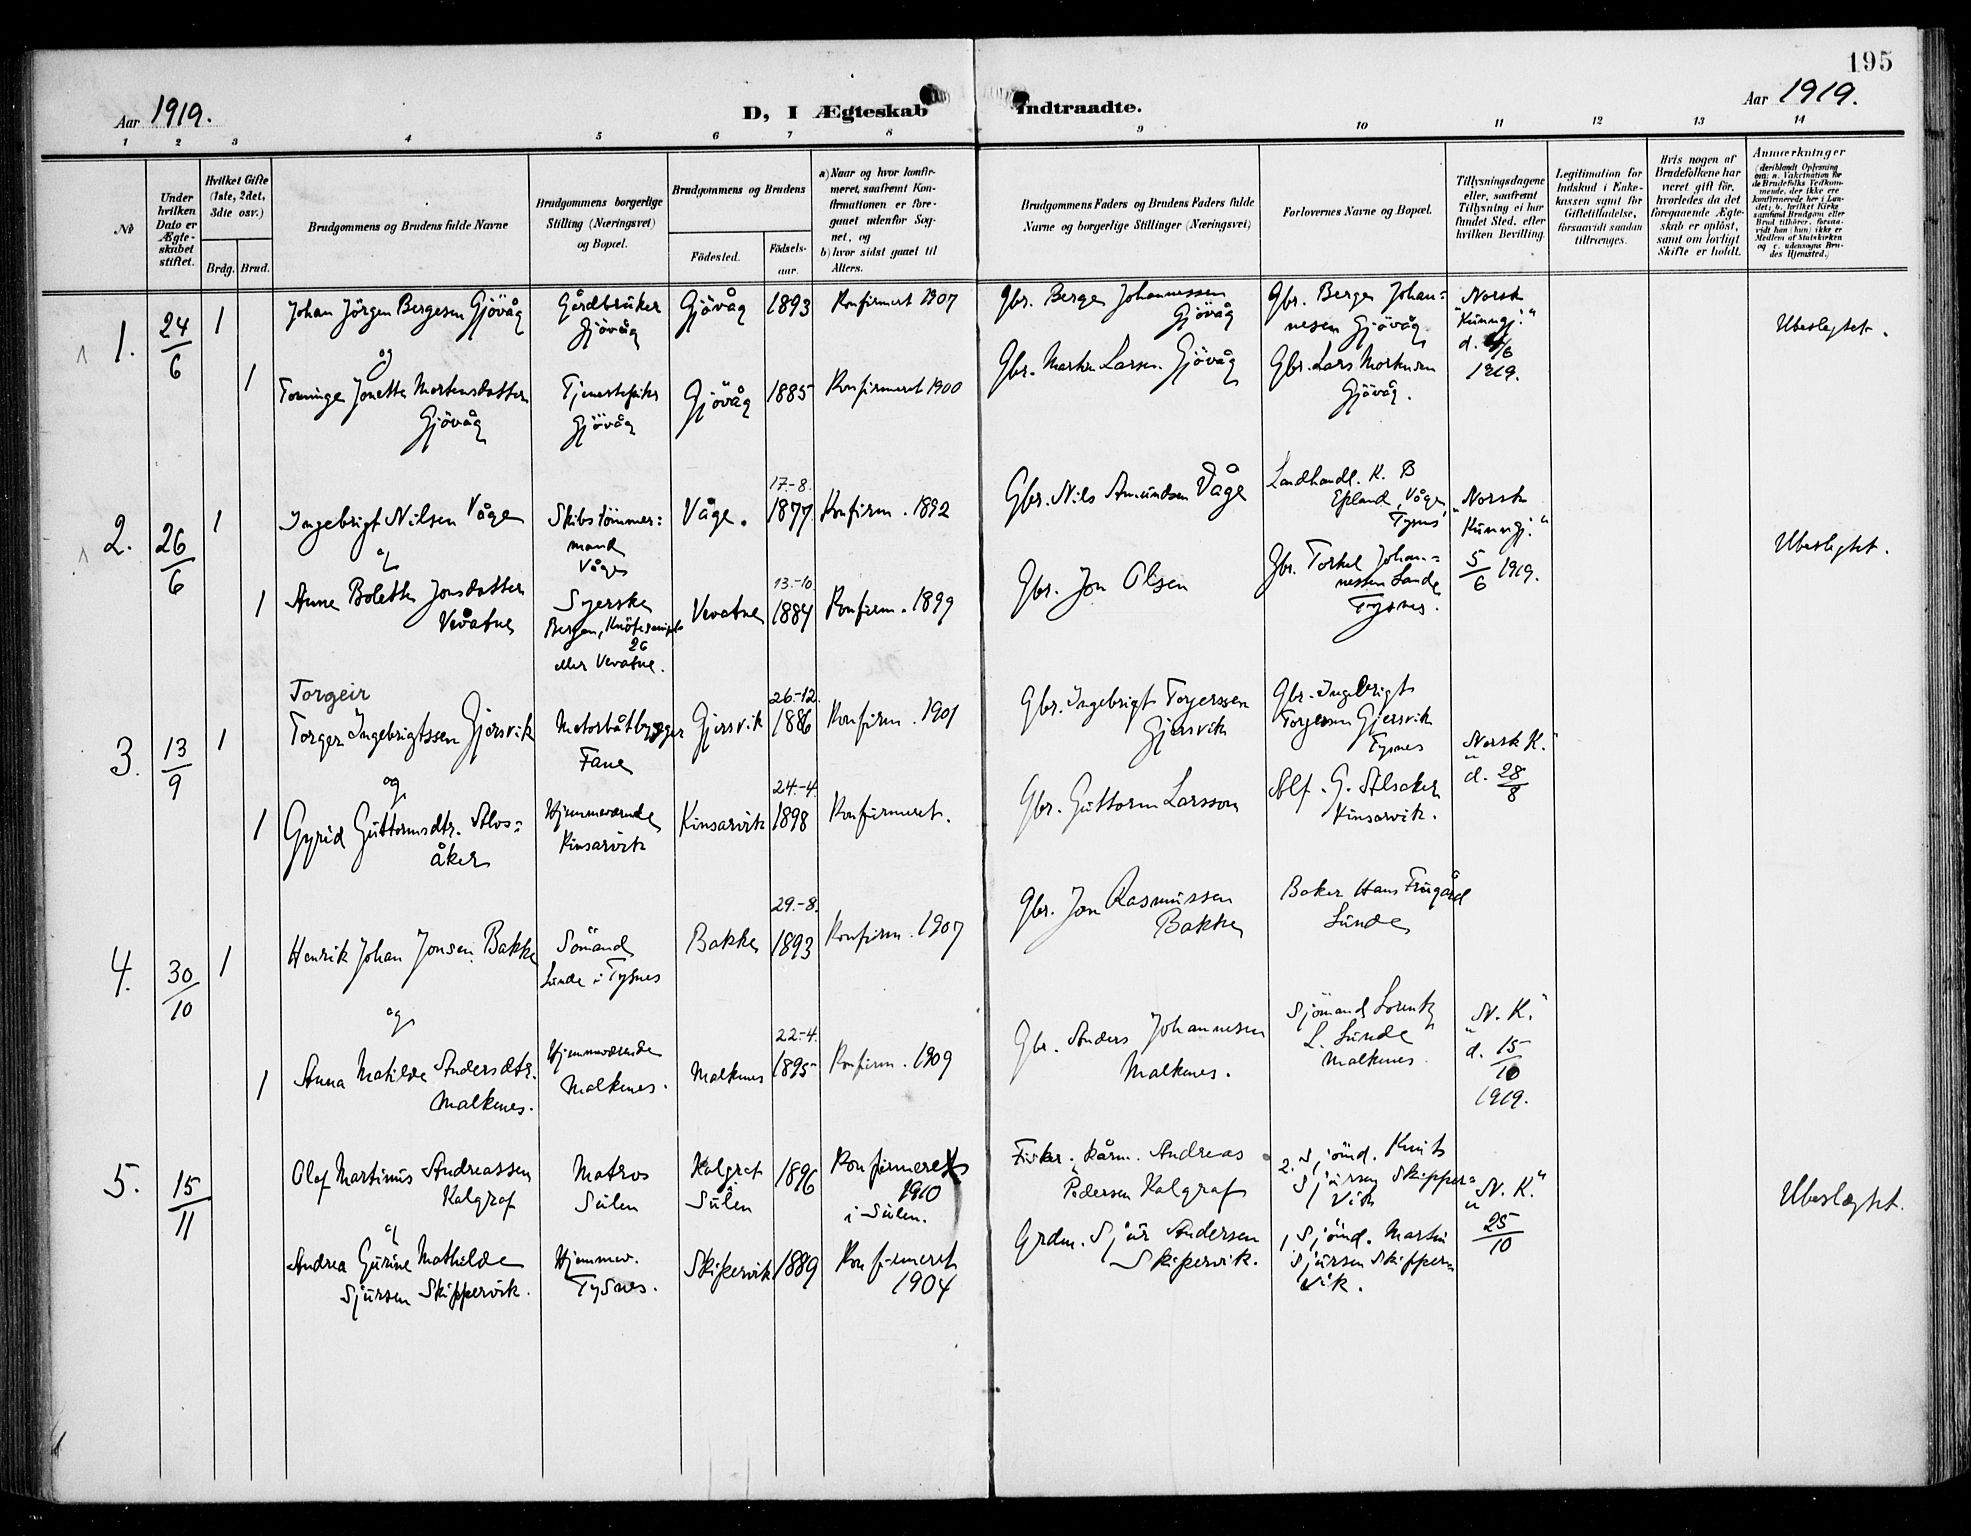 195
Aar 1919.
D, I Ægteskab Indtraadte.
Aar 1919.
1 2 3 4 5 6 7 8 9 10 11 12 13 14
№
Under
hvilken
Dato er
Ægte-
skabet
stiftet.
Hvilket Gifte
(1ste, 2det,
3die osv.)
Brdg. Brud.
Brudgommens og Brudens fulde Navne
Brudgommens borgerlige
Stilling (Næringsvei)
og Bopæl.
Brudgommens og Brudens
Fødested.
Fødsels-
aar.
a) Naar og hvor konfir-
meret, saafremt Kon-
firmationen er fore-
gaaet udenfor Sog-
net, og
b) hvor sidst gaaet til
Alters.
Brudgommens Faders og Brudens Faders fulde
Navne og borgerlige Stillinger (Næringsvei)
Forlovernes Navne og Bopæl.
Tillysningsdagene
eller, saafremt
Tillysning ei har
fundet Sted, efter
hvilken Bevilling.
Legitimation for
Indskud i Enke-
kassen samt for
Giftetilladelse,
forsaavidt saadan
tiltrænges.
Hvis nogen af
Brudefolkene har
været gift før,
hvorledes da det
foregaaende Ægte-
skab er opløst,
samt om lovligt
Skifte er holdt.
Anmærkninger
(deriblandt Oplysning
om: a. Vakcination for
de Brudefolks Vedkom-
mende, der ikke ere
konfirmerede her i Lan-
det; b. hvilket Kirke-
samfund Brudgom eller
Brud tilhører, forsaa-
vidt han (hun) ikke er
Medlem af Statskirken
og c. udensogns Bru-
des Hjemsted.)
1. 24/6 1
Johan Jörgen Bergesen Gjövåg
Gårdbrüker
Gjövåg
Gjövåg 1893 Konfirmert 1907
Gbr. Berge Johannessen
Gjövåg
Gbr. Berge Johan=
nesen Gjövåg
"Norsk
Kunngj."
d. /6
1919.
Ubeslegtet.
og
1
Jonette Mortensdatter
Gjövåg
Gjövåg
Gjövåg 1885 Konfirmeret 1900
Gbr. Larsen Gjövåg
Gbr. Lars Mortensen
Gjövåg.
2. 26/6 1
Ingebrigt Nilsen Våge
Skibstömmer=
mand
Våge
Våge. 17.-8. 1877 Konfirm. 1892
Gbr. Nils Amundsen Våge
Landhandl. K. B
Epland, Våge,
Tysnes
"Norsk
Kunngj."
5/6 1919.
Ubeslegtet.
og
1
Anne Bolette Jonsdatter
Vevatne
Syerske
Bergen,
26
eller Vevatne.
Vevatne 13.-10 1884 Konfirm. 1899
Gbr. Jon Olsen
Gbr. Torkel Johan=
nessen Lande
Tysnes.
3. 13/9 1
Torgeir
Torger Ingebrigtssen Gjersvik
Motorbåtbygger
Fane
Gjersvik 26.-12. 1886 Konfirm. 1901
Gbr. Ingebrigt Torgerssen
Gjersvik
Gbr. Ingebrigt
Torgersen Gjersvik
Tysnes
"Norsk K."
d. 28/8
og
1
Gyrid Güttormsdtr. Alvs=
åker
Hjemmeværende
Kinsarvik
Kinsarvik 24.-4. 1898 Konfirmeret.
Gbr. Güttorm Larsson
G. Alsaker
Kinsarvik.
4. 30/10 1
Henrik Johan Jonsen Bakke
Sömand
Lunde i Tysnes
Bakke 29.-8. 1893 Konfirm. 1907
Gbr. Jon Rasmüssen
Bakke
Baker Hans Früg°ard
Lünde
og
1
Anna Matilde Andersdtr.
Malkenes.
Hjemmeværende
Malkenes.
Malkenes 22.-4. 1895 Konfirm. 1909
Gbr. Anders Johannesen
Malkenes.
Sjömand Lorentz
L. Lünde
Malkenes.
"N. K."
d. 15/10
1919.
5. 15/11
Olaf Martinüs Andreassen
Kalgraf
Matros
Sülen
Kalgraf
Sülen
1896 Konfirmeret
1910
i Sülen.
Fisker, Andreas
Pedersen Kalgraf
2. Sjömd. Knüt
Sjürsen Skipper=
vik
"N. K."
25/10
Ubeslægtet.
og
Andrea Gürine Mathilde
Sjürsen Skippervik.
Hjemmev.
Tysnes.
Skipervik 1889 Konfirmeret
1904
Grdm. Sjür Andersen
Skipervik.
1 Sjömd. Martin
Sjürsen Skipper=
vik.